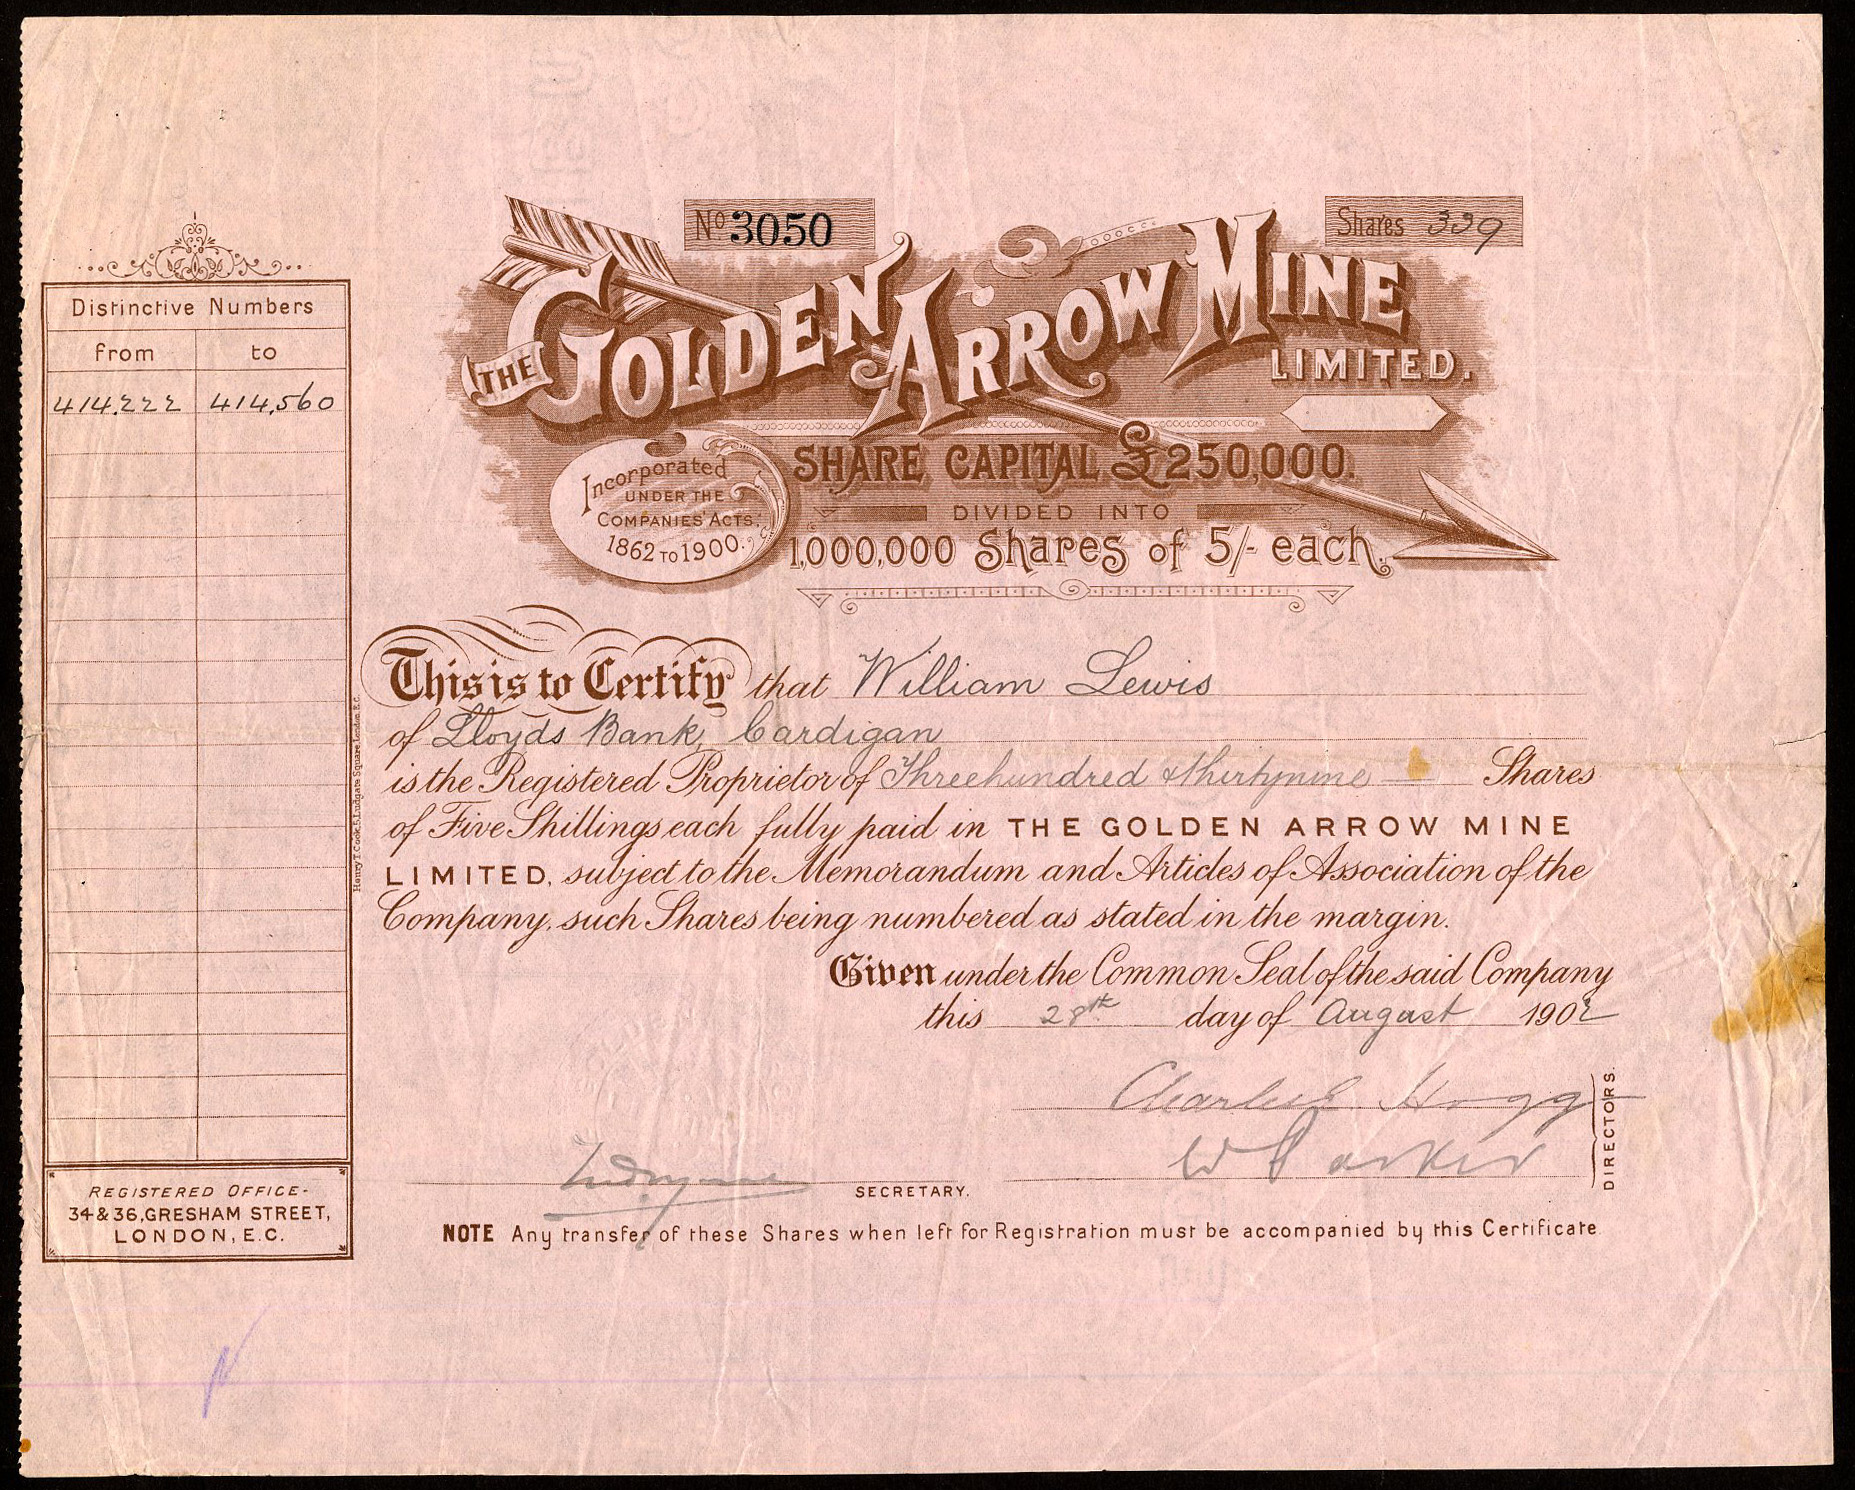 No 3050
Shares 339
THE GOLDEN ARROW MINE
LIMITED.
Incorporated
UNDER THE
COMPANIES' ACTS.
1862 TO 1900.
SHARE CAPITAL £250,000.
DIVIDED INTO
1,000,000 Shares of 5/- each.
Distinctive Numbers
from to
414,222 414,560
This is to Certify that William Lewis
of Lloyds Bank, Cardigan
is the Registered Proprietor of Threehundred & thirtynine Shares
of Five Shillings each fully paid in THE GOLDEN ARROW MINE
LIMITED, subject to the Memorandum and Articles of Association of the
Company, such Shares being numbered as stated in the margin.
Given under the Common Seal of the said Company
this 28th day of August 1902
Charles Hogg
W Parker
DIRECTORS.
SECRETARY.
NOTE Any transfer of these Shares when left for Registration must be accompanied by this Certificate
REGISTERED OFFICE-
34 & 36, GRESHAM STREET,
LONDON, E.C.
Henry T. Cook, 5, Ludgate Square, London, E.C.